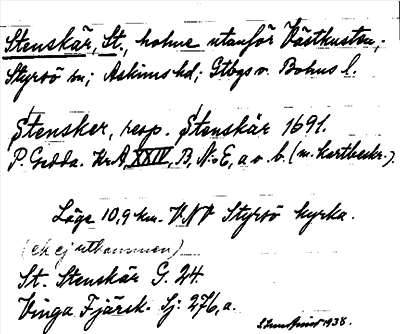 Stenskär, St., holme utanför Västkusten;
Styrsö sn; Askims hd; Gtbgs o. Bohus l.
Stensker, resp. Stenskär 1691.
P. Gedda. Kr A, XXIV, B, N:E, a o. b. (m. Kartbeskr.).
Läge 10,9 km. V.NV Styrsö kyrka.
(ek ej utkommen)
St. Stenskär G. 24.
Vinga Fjärsk. Sj: 276, a.
1938.